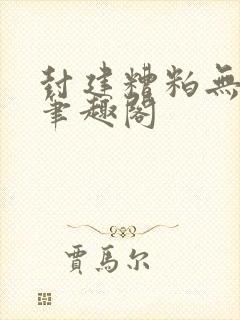 封建糟粕無
筆趣閣
賈馬尔